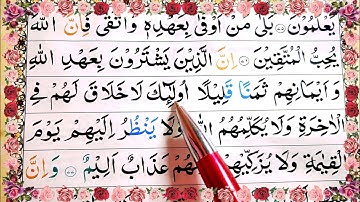 يَعْلَمُوْنَ ۝۷۵ بَلٰى مَنْ اَوْفٰى بِعَهْدِهٖ وَاتَّقٰى فَاِنَّ اللّٰهَ
يُحِبُّ الْمُتَّقِيْنَ ۝۷۶ اِنَّ الَّذِيْنَ يَشْتَرُوْنَ بِعَهْدِ اللّٰهِ
وَاَيْمَانِهِمْ ثَمَنًا قَلِيْلًا اُولٰٓئِكَ لَا خَلَاقَ لَهُمْ فِى
الْاٰخِرَةِ وَلَا يُكَلِّمُهُمُ اللّٰهُ وَلَا يَنْظُرُ اِلَيْهِمْ يَوْمَ
الْقِيٰمَةِ وَلَا يُزَكِّيْهِمْ عَذَابٌ اَلِيْمٌ ۝۷۷ وَاِنَّ